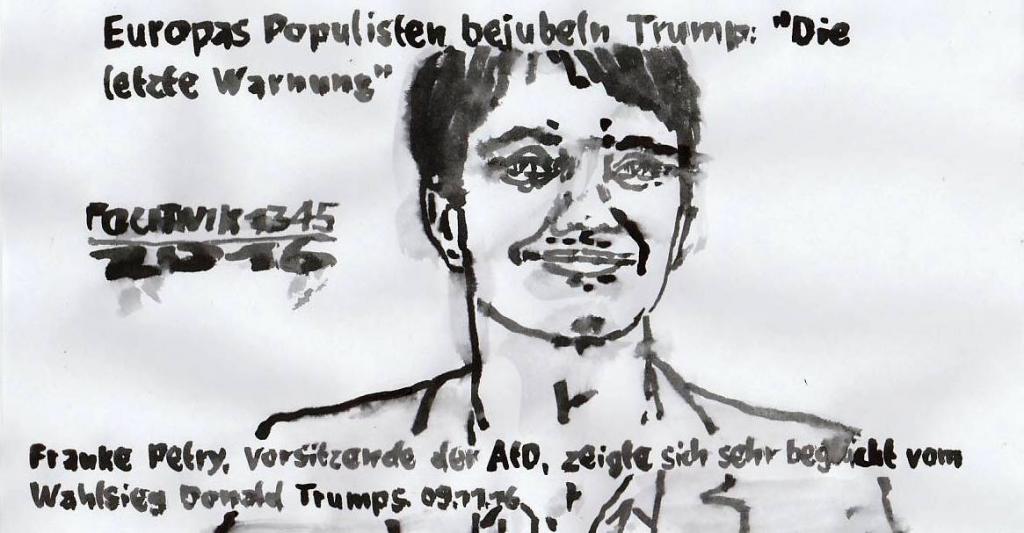 Europas Populisten bejubeln Trump: "Die
letzte Warnung"
POLITNIK 1345
2016
Frauke Petry, Vorsitzende der AfD, zeigte sich sehr beglückt vom
Wahlsieg Donald Trumps. 09.11.16